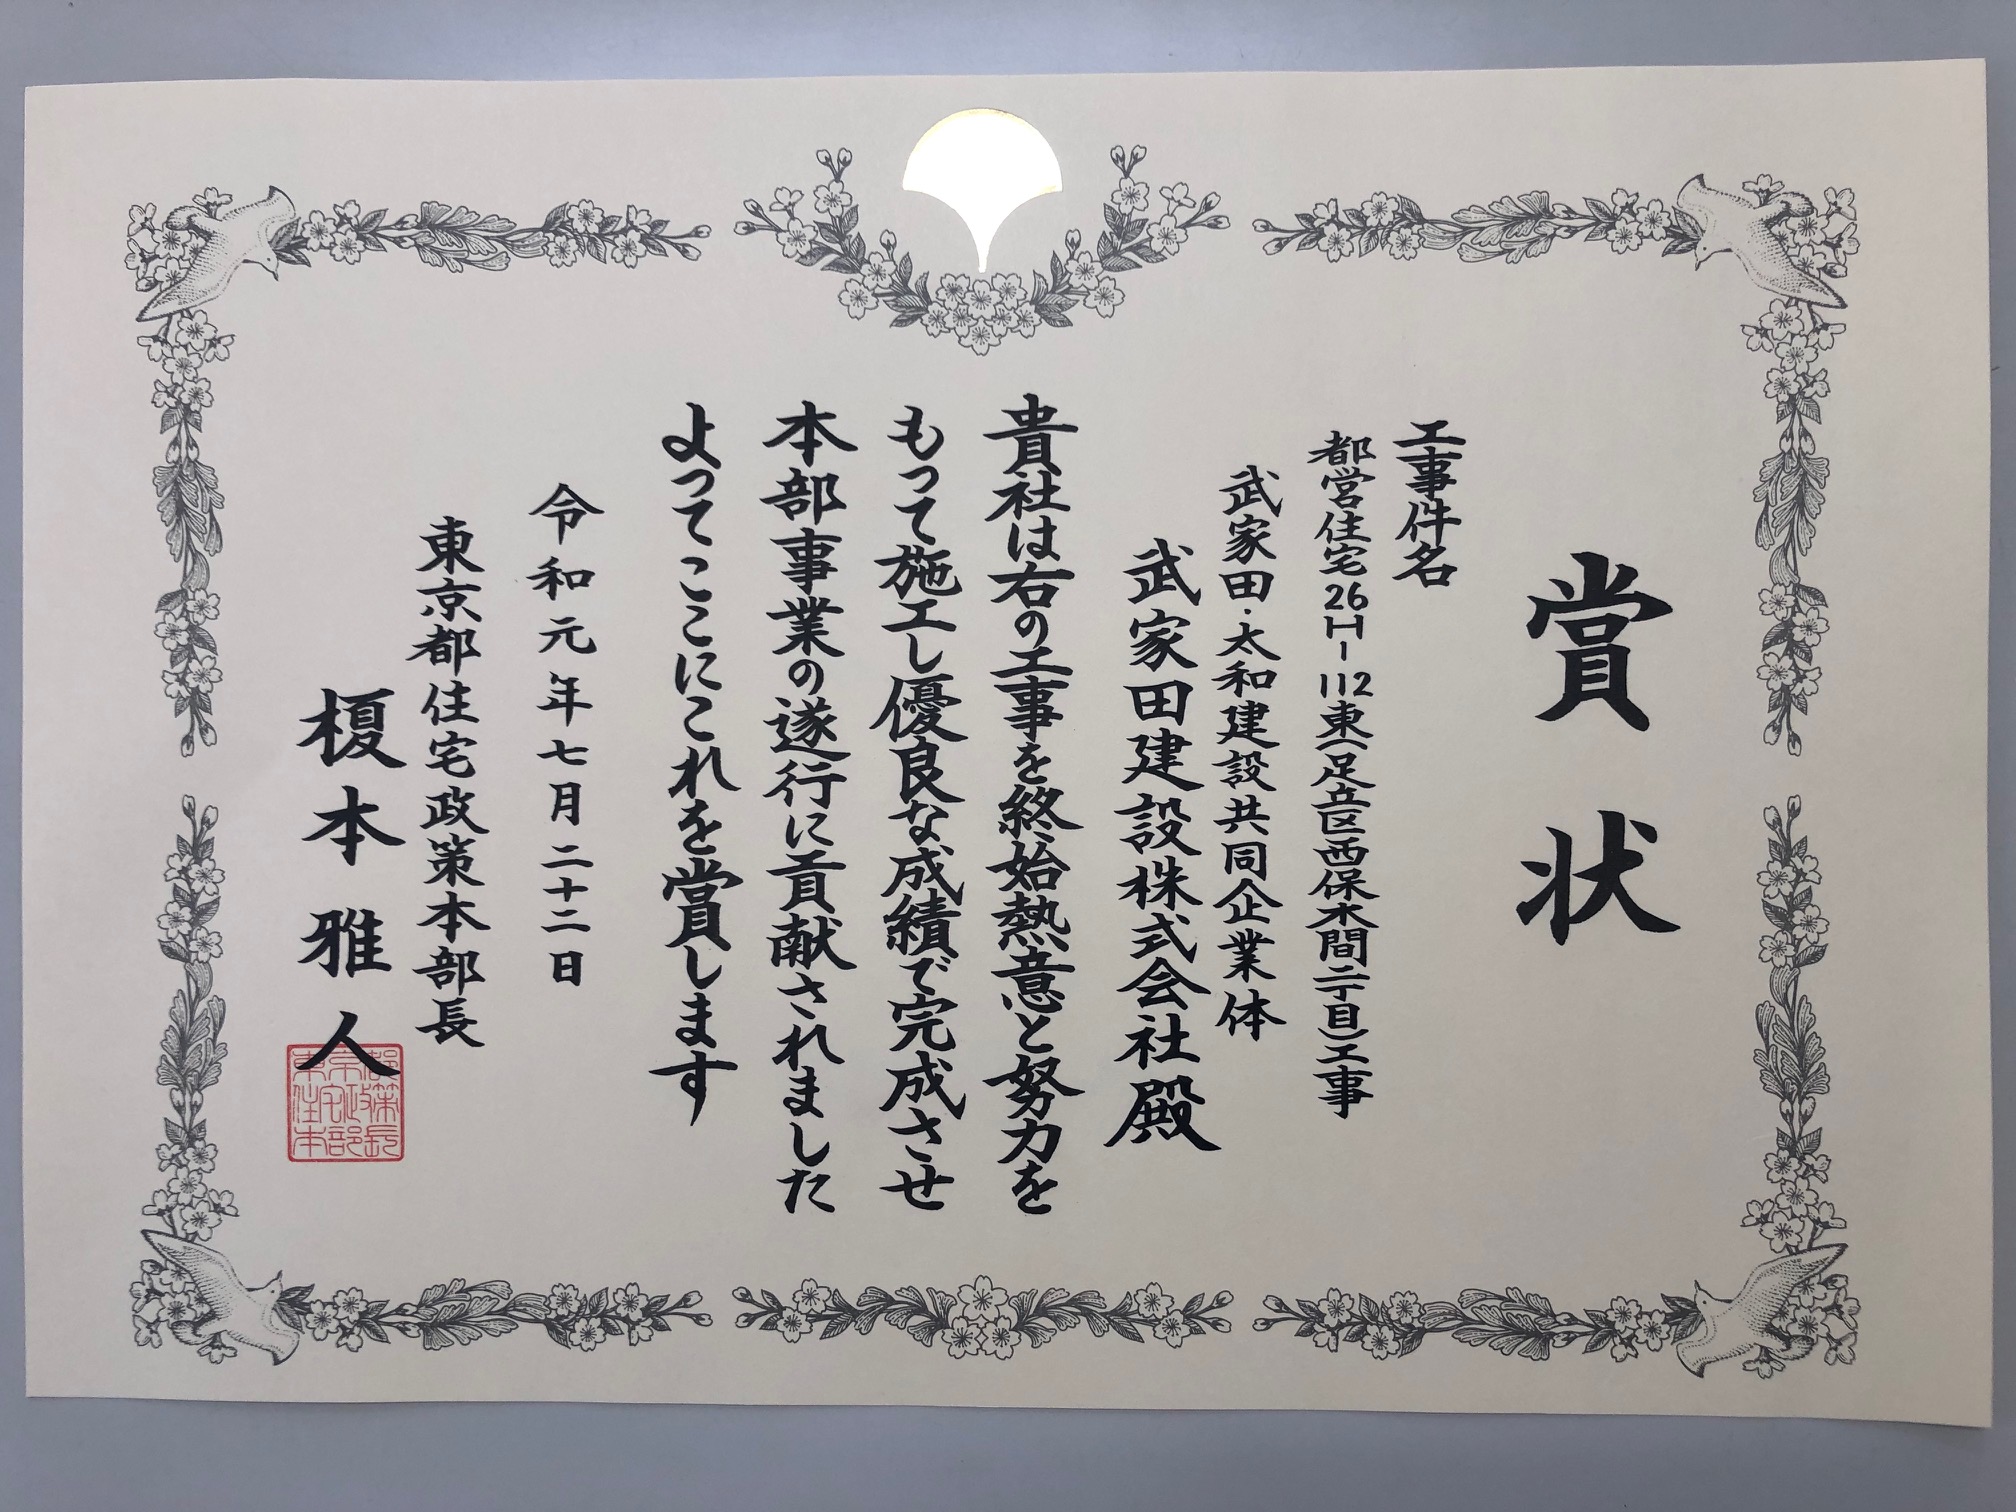 賞状
工事件名
都営住宅26H-112東(足立区西保木間二丁目)工事
武家田・太和建設共同企業体
武家田建設株式会社殿
貴社は右の工事を終始熱意と努力を
もって施工し優良な成績で完成させ
本部事業の遂行に貢献されました
よってここにこれを賞します
令和元年七月二十二日
東京都住宅政策本部長
榎本雅人
東京都
住宅政策
本部長